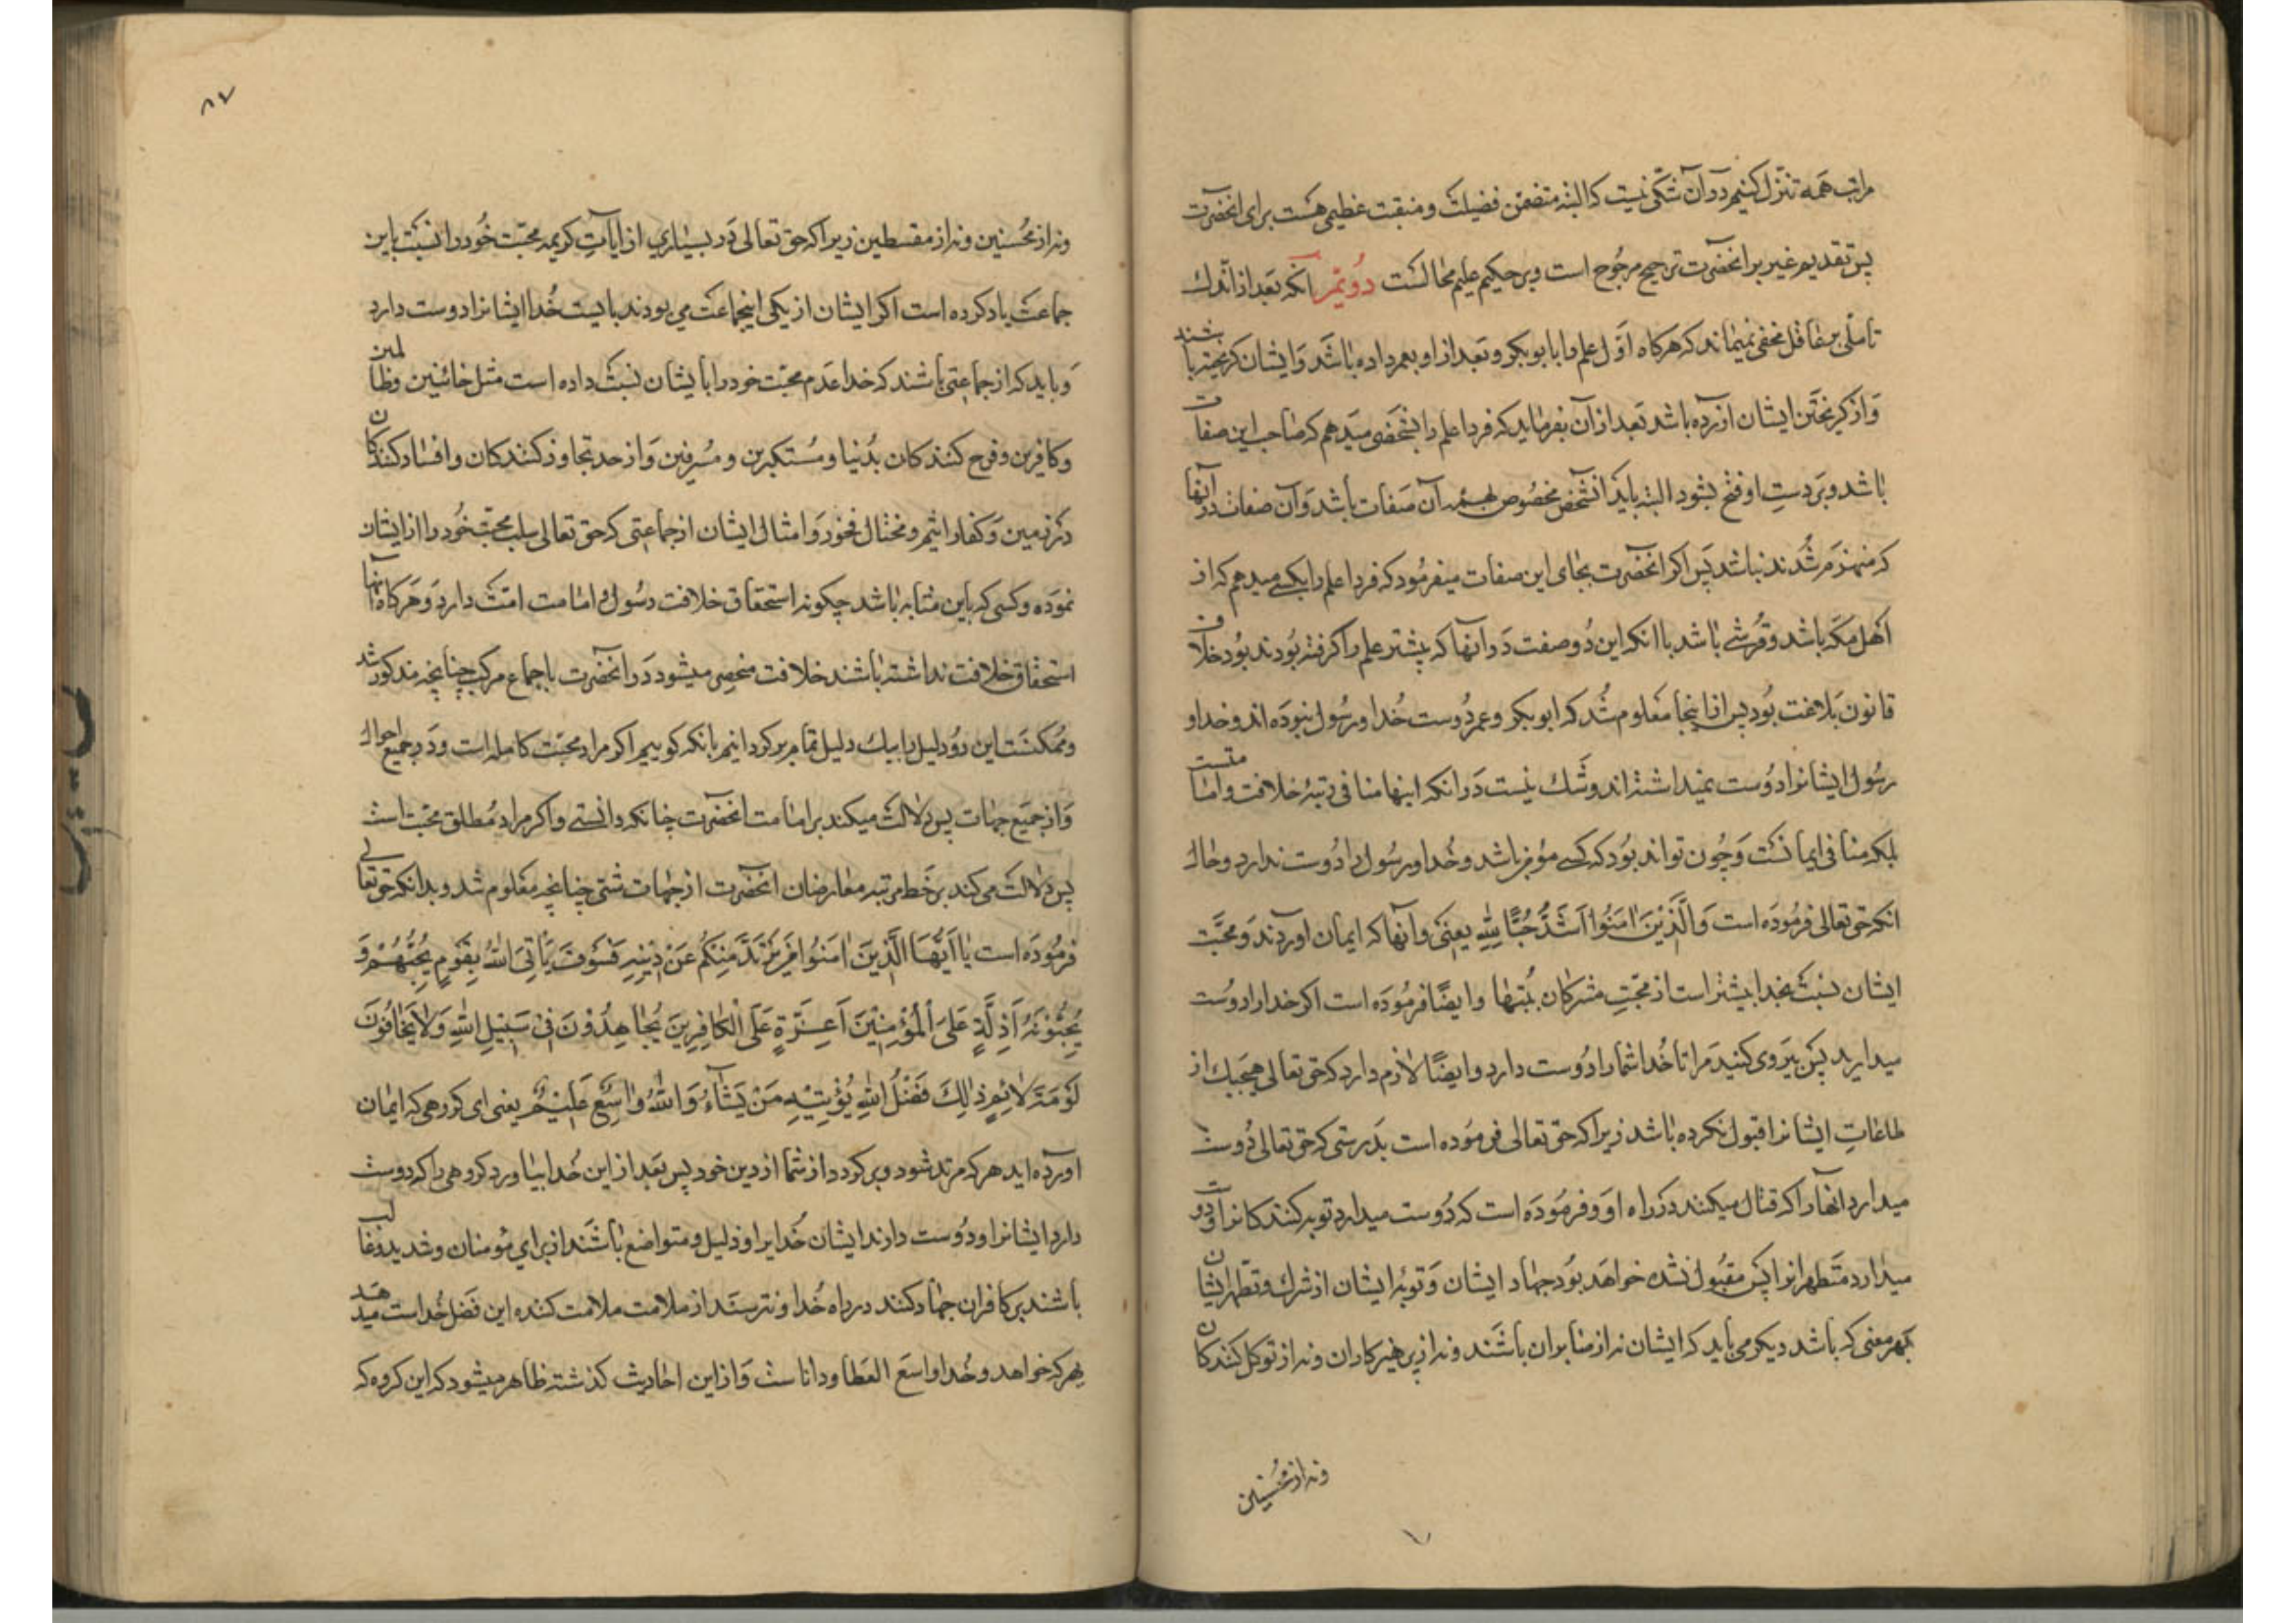 مراتب همه تنزل کنیم در آن شکی نیست که البته متضمن فضیلت و منقبت عظیمی هست برای انحضرت
پس تقدیم غیر بر انحضرت ترجیح مرجوح است و بر حکیم علیم محالست دویّم انکه بعد از اندک
تاملی بر عاقل مخفی نمیماند که هرگاه اوّل علم را بابوبکر و بعد از او بعمر داده باشد و ایشان کریخته باشند
و از کریختن ایشان ازرده باشد بعد از آن بفرماید که فردا علم را بشخصی میدهم که صاحب این صفات
باشد و بر دستِ او فتح بشود البته باید آنشخص مخصوص بهمه آن صفات باشد و آن صفات در آنها
که منهزم شدند نباشد پس اکر انحضرت بجای این صفات میفرمود که فردا علم را بکسے میدهم که از
اهل مکّه باشد و قرشے باشد با انکه این دو صفت در آنها که پیشتر علم را کرفته بودند بود خلاف
قانون بلاغت بود پس از اینجا معلوم شد که ابوبکر و عمر دوست خدا و رسول نبوده اند و خدا و
رسول ایشانرا دوست نمیداشته اند و شک نیست در انکه اینها منافی رتبۀ خلافت و امامتست
بلکه منافی ایمانست و چون تواند بود که کسے مؤمن باشد و خدا و رسول را دوست ندارد و حال
انکه حق تعالی فرموده است وَالَّذِیْنَ اٰمَنُوا اَشَدُّ حُبًّا لِلّٰهِ یعنی و آنها که ایمان آوردند و محبّت
ایشان نسبت بخدا بیشتر است از محبّتِ مشرکان بُتها و ایضًا فرموده است اکر خدا را دوست
میدارید پس پیروی کنید مرا تا خدا شما را دوست دارد و ایضًا لازم دارد که حق تعالی هیچیک از
طاعاتِ ایشانرا قبول نکرده باشد زیرا که حق تعالی فرموده است بدرستی که حق تعالی دوست
میدارد انها را که قتال میکنند در راه او و فرموده است که دوست میدارد توبه کنندکانرا و دوست
میدارد متطهرانرا پس مقبول نشده خواهد بود جهاد ایشان و توبۀ ایشان از شرک و تطّهر ایشان
بهر معنی که باشد دیکر می باید که ایشان نه از صابران باشند و نه از پرهیزکاران و نه از توکل کنندکان
ونه از محسنین
۸۷
ونه از محُسنین و نه از مقسطین زیرا که حق تعالی در بسیاری از ایاتِ کریمه محبّت خود را نسبت باین
جماعت یاد کرده است اکر ایشان از یکی اینجماعت می بودند بایست خُدا ایشانرا دوست دارد
و باید که از جماعتی باشند که خدا عدم محبّت خود را بایشان نسبت داده است مثل خائنین و ظالمین
و کافرین و فرح کنندکان بدُنیا و مُستکبرین و مُسرفین و از حد تجاوز کنندکان و افساد کنندکان
در زمین و کفار اثیم و مختال فخور و امثال ایشان از جماعتی که حق تعالی سلب محبّت خود را از ایشان
نموده و کسی که باین مثابه باشد چکونه استحقاق خلافت رسول و امامت امّت دارد و هرکاه انها
استحقاق خلافت نداشته باشند خلافت منحصر میشود در انحضرت باجماع مرکب چنانچه مذکور شد
و ممکنست این دو دلیل را بیک دلیل تمام برکردانیم بانکه کوییم اکر مراد محبّت کامله است و در جمیع احوال
و از جمیع جهات پس دلالت میکند بر امامت انحضرت چنانکه دانستے و اکر مراد مُطلق محبّت است
پس دلالت می کند بر حَطّ مرتبه معارضان انحضرت از جهات شتی چنانچه معلوم شد و بدانکه حق تعالی
فرموده است یٰا اَیُّهَا الَّذِینَ اٰمَنُوا مَنْ یَرْتَدَّ مِنْکُم عَنْ دِیْنِهِ فَسَوْفَ یَأْتِی اللّٰهُ بِقَومٍ یُحِبُّهُمْ وَ
یُحِبُّوْنَهُ اَذِلَّةٍ عَلَی الْمُؤْمِنِیْنَ اَعِزَّةٍ عَلَی الْکٰافِرِینَ یُجٰاهِدُوْنَ فِی سَبِیْلِ اللّٰهِ وَلٰا یَخٰافُوْنَ
لَوْمَةَ لٰائِمٍ ذٰلِکَ فَضْلُ اللّٰهِ یُؤْتِیْهِ مَنْ یَشٰآءُ وَاللّٰهُ وٰاسِعٌ عَلِیْمٌ یعنی ای کروهی که ایمان
آورده اید هر که مرتد شود و برکردد از شما از دین خود پس بعد از این خُدا بیاورد کروهی را که دوست
دارد ایشانرا و دوست دارند ایشان خُدا را و ذلیل و متواضع باشند از برای مومنان و شدید و غالب
باشند بر کافران جهاد کنند در راه خُدا و نترسند از ملامت ملامت کننده این فضل خُداست میدهد
بهر که خواهد و خُدا واسع العطا و داناست و از این احادیث کذشته ظاهر میشود که این کروه که